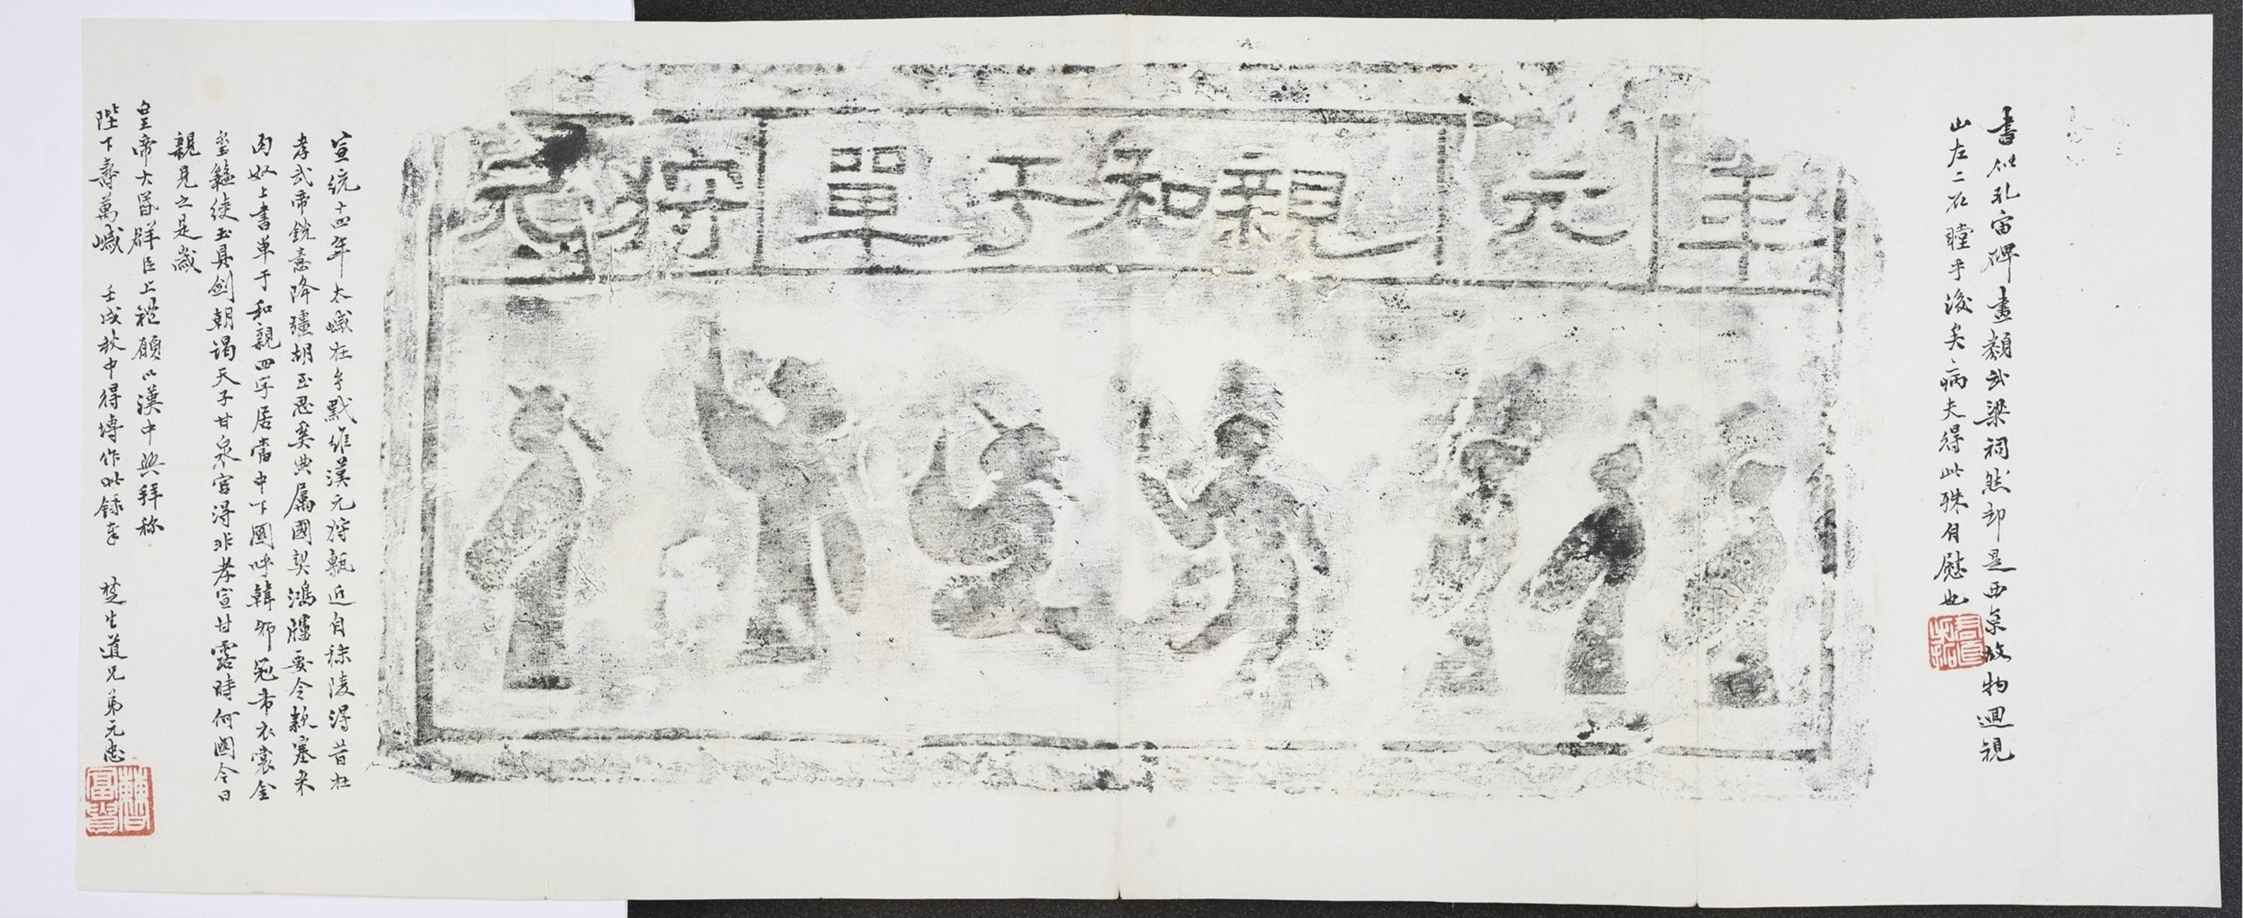 書似孔宙碑畫類武梁祠然却是西京故物迴視
山左二石瞠乎後矣病夫得此殊自慰也
元狩單于和親元年
宣統十四年太歲在玄黓維漢元狩甎近自秣陵得昔在
孝武帝銳意降彊胡典屬國契鴻臚要令款塞来
匈奴上書單于和親四字居當中下圖呼韓邪冠帶衣裳金
璽盭綬玉具劍朝謁天子甘泉宮得非孝宣甘露時何圖今日
親見之是歲
皇帝大昏群臣上禮願以漢中興拜称
陛下壽萬歲 壬戌秋中得塼作此錄奉 楚生道兄弟元忠